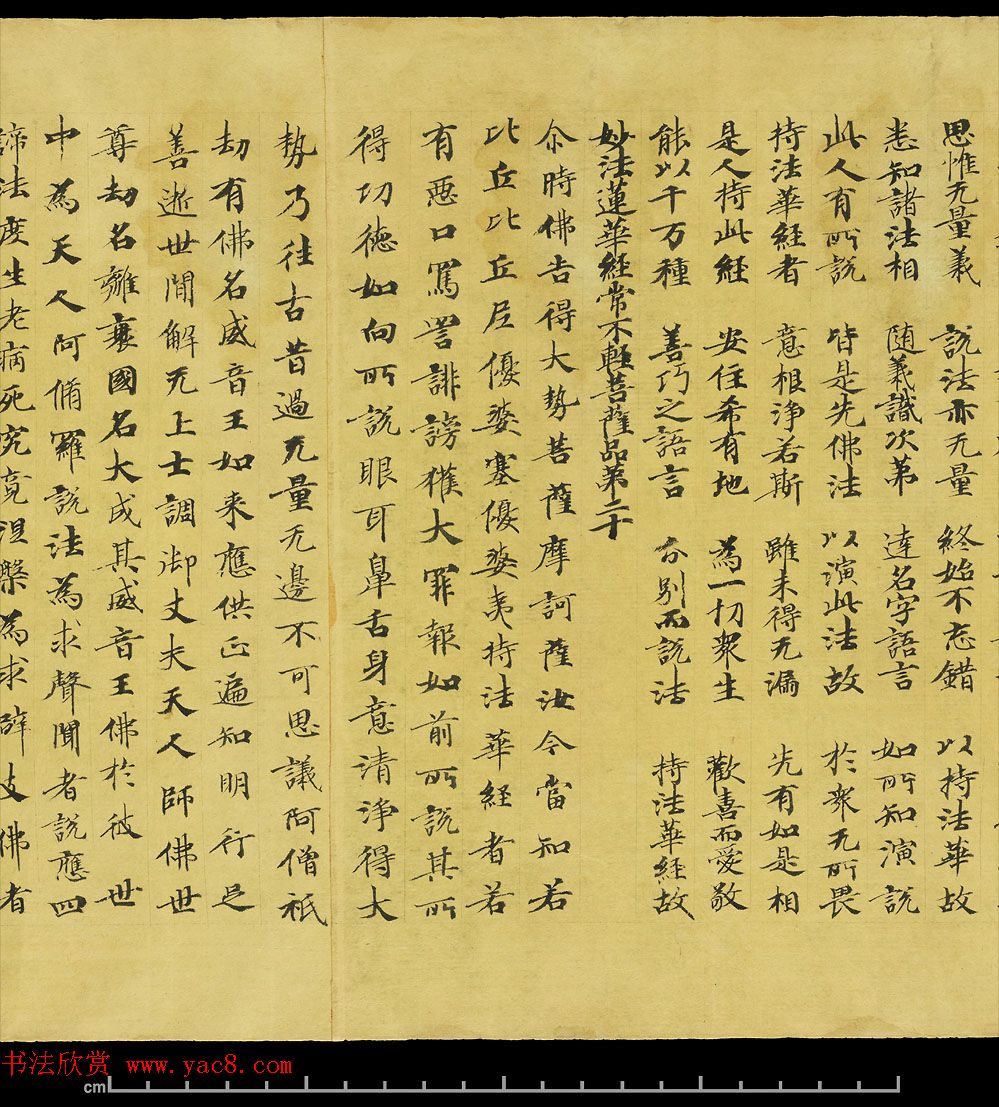 思惟无量義 說法亦无量 終始不忘錯 以持法華故
悉知諸法相 随義識次第 達名字語言 如所知演說
此人有所說 皆是先佛法 以演此法故 於衆无所畏
持法華経者 意根浄若斯 雖未得无漏 先有如是相
是人持此経 安住希有地 為一切衆生 歡喜而愛敬
能以千万種 善巧之語言 分別而說法 持法華経故
妙法蓮華経常不輕菩薩品第二十
尒時佛告得大勢菩薩摩訶薩汝今當知若
比丘比丘尼優婆塞優婆夷持法華経者若
有惡口罵詈誹謗獲大罪報如前所說其所
得功德如向所說眼耳鼻舌身意清浄得大
勢乃往古昔過无量无邊不可思議阿僧祇
劫有佛名威音王如来應供正遍知明行足
善逝世間解无上士調御丈夫天人師佛世
尊劫名離衰國名大成其威音王佛於彼世
中為天人阿脩羅說法為求聲聞者說應四
諦法度生老病死究竟涅槃為求辟支佛者
书法欣赏 www.yac8.com
cm